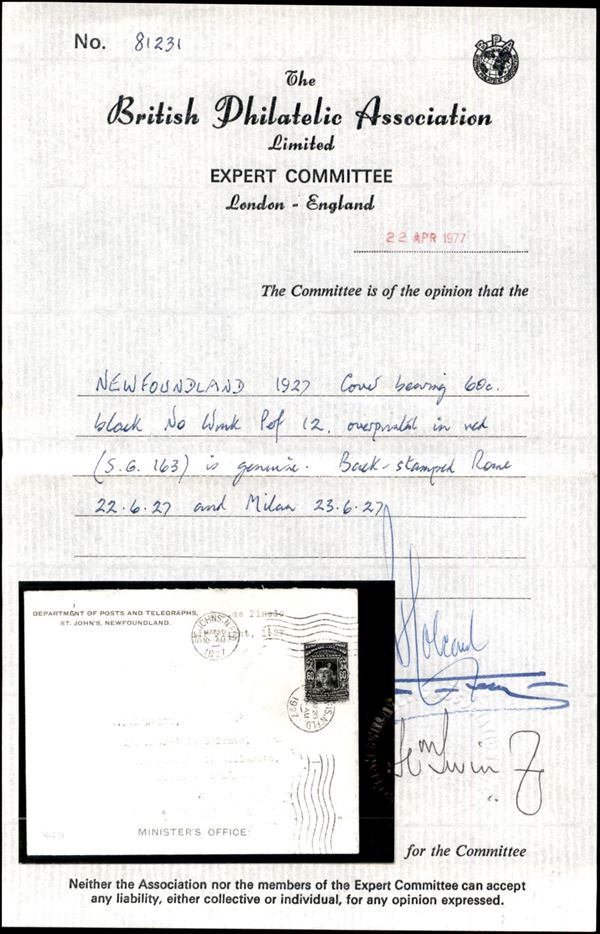 No. 81231
BPA
The
British Philatelic Association
Limited
EXPERT COMMITTEE
London - England
22 APR 1977
The Committee is of the opinion that the
NEWFOUNDLAND 1927 Cover bearing 60c.
black No Wmk Perf 12. overprinted in red
(S.G. 163) is genuine. Back-stamped Rome
22.6.27 and Milan 23.6.27
DEPARTMENT OF POSTS AND TELEGRAPHS,
ST. JOHN'S, NEWFOUNDLAND.
de Pinedo
ST. JOHN'S, N'F'LD
1927
MINISTER'S OFFICE
for the Committee
Neither the Association nor the members of the Expert Committee can accept
any liability, either collective or individual, for any opinion expressed.